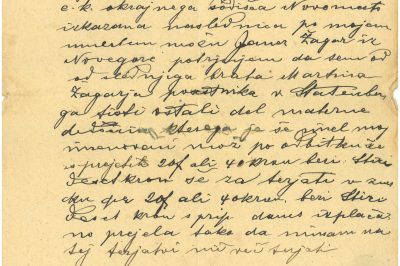 c. k. okrajnega sodišča Novomesto
izkazana naslednica po mojem
umrlem možu Janez Zagar iz
Novegore potrjujem da sem od
od  brata Martina
Zagarja posestnika v
ga tisti ostali del materne
 katerega je še imel moj
imenovani mož po odbitku že
sprejetih 20f ali 40 kron beri Štiri
deset kron še za terjati v znes
ku per 20f ali 40 kron, beri Štiri
deset kron s prip danes izplača
no prejela tako da nimam na
tej terjatvi nič več terjati